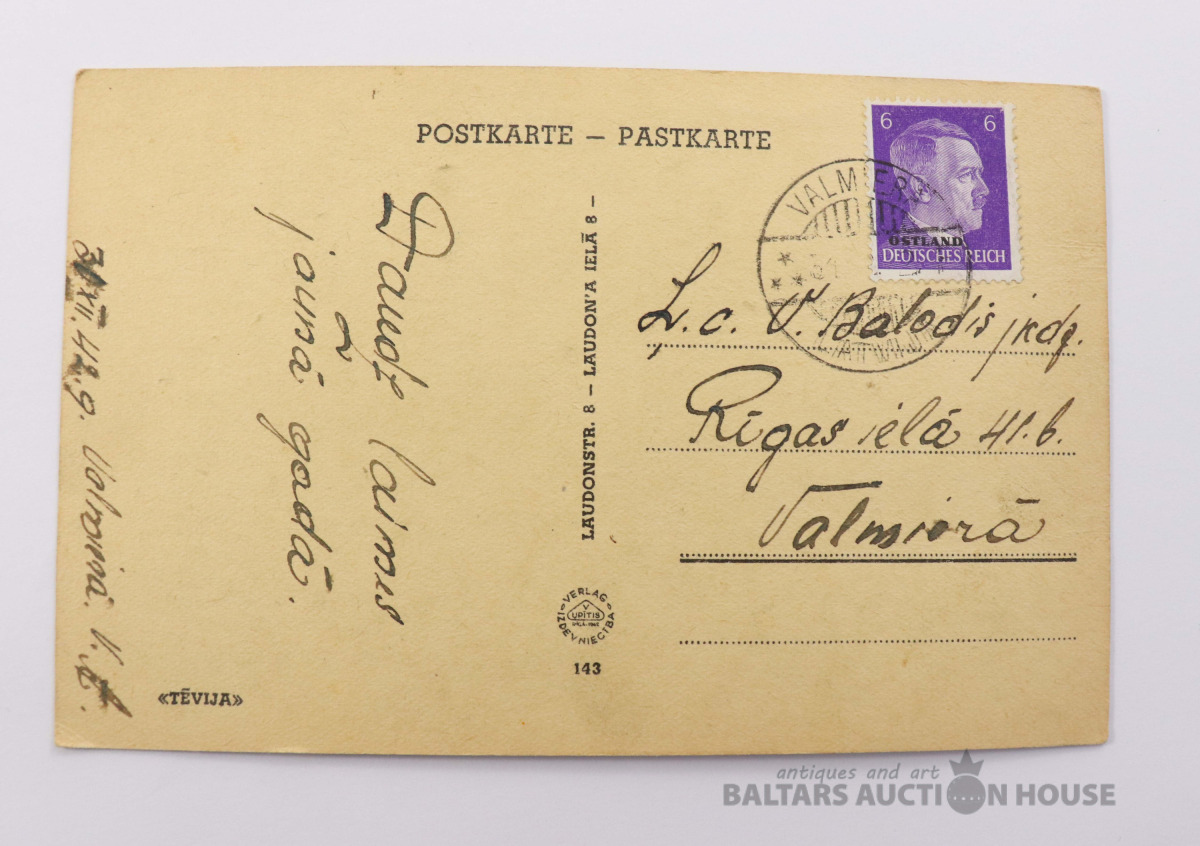 POSTKARTE — PASTKARTE
6 6
OSTLAND
DEUTSCHES REICH
VALMIERA
Daudz laimes
jaunā gadā.
31 XII. 42. g. Valmierā. V.
LAUDONSTR. 8 – LAUDON'A IELĀ 8 –
L. c. V. Balodis jkdz.
Rīgas ielā 41. b.
Valmierā
VERLAG
V
UPĪTIS
IZDEVNIECĪBA
143
«TĒVIJA»
antiques and art
BALTARS AUCTION HOUSE